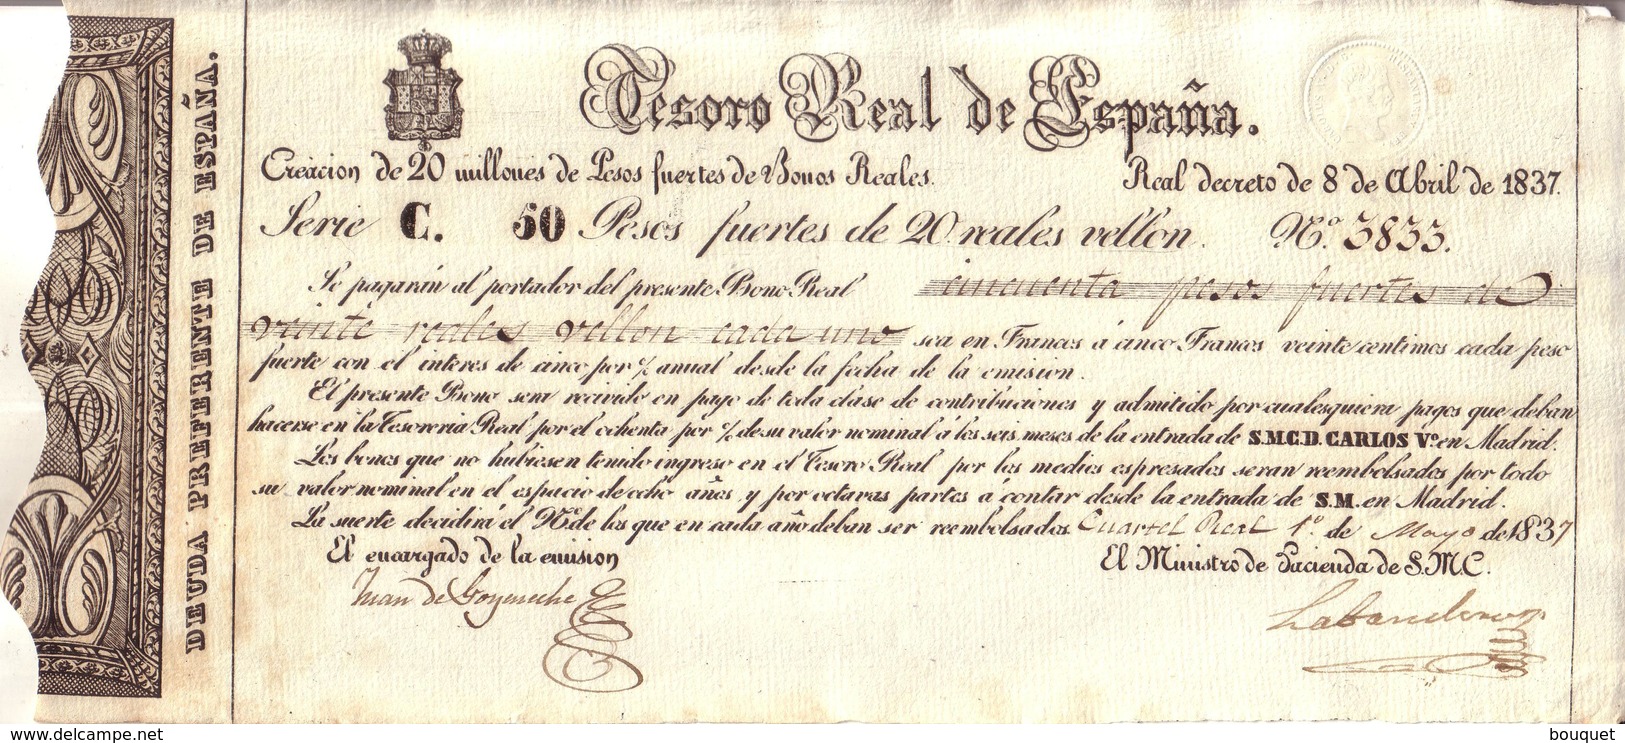 DEUDA PREFERENTE DE ESPAÑA.
Tesoro Real de España.
Creacion de 20 millones de Pesos fuertes de Bonos Reales. Real decreto de 8 de Abril de 1837.
Serie C. 50 Pesos fuertes de 20 reales vellon. Nº 3833.
Se pagarán al portador del presente Bono Real cincuenta pesos fuertes de
veinte reales vellon cada uno sea en Francos á cinco Francos veinte centimos cada peso
fuerte con el interes de cinco por % anual desde la fecha de la emision.
El presente Bono sera recivido en pago de toda clase de contribuciones y admitido por cualesquiera pagos que deban
hacerse en la Tesoreria Real por el ochenta por % de su valor nominal á los seis meses de la entrada de S.M.C.D. CARLOS Vº en Madrid.
Los bonos que no hubiesen tenido ingreso en el Tesoro Real por los medios espresados seran reembolsados por todo
su valor nominal en el espacio de ocho años, y por octavas partes á contar desde la entrada de S.M. en Madrid.
La suerte decidirá el Nº de los que en cada año deban ser reembolsados. Cuartel Real 1º de Mayo de 1837
El encargado de la emision El Ministro de Hacienda de S.M.C.
Juan de Goyeneche Labandero
bouquet